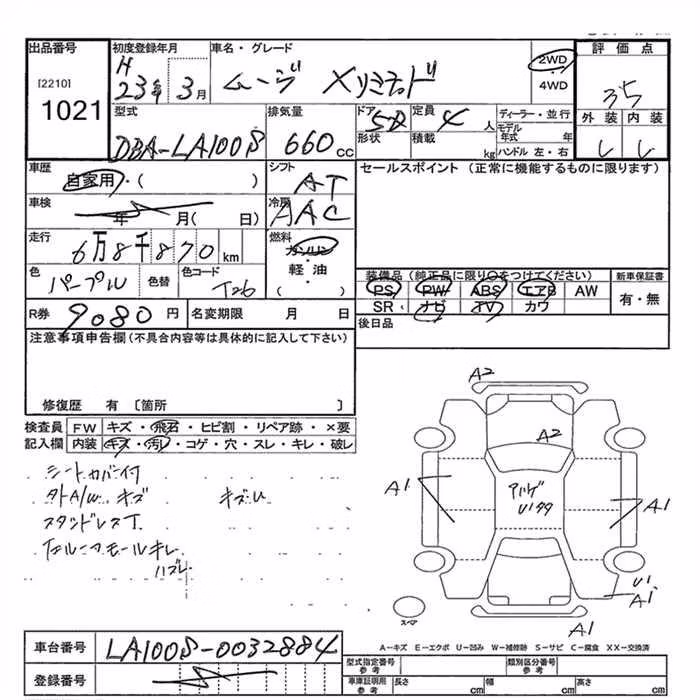 出品番号 初度登録年月 車名・グレード 評価点
[2210] H 23年 3月 ムーヴ Xリミテッド 2WD 4WD 35
1021
型式 排気量 ドア 定員 ディーラー・並行 外装 内装
DBA-LA100S 660cc 5D 4人 モデル年式 年
形状 積載 kg ハンドル 左・右
車歴 自家用・( ) シフト AT セールスポイント (正常に機能するものに限ります)
車検 年 月( 日) 冷房 AAC
走行 6万8千870km 燃料 ガソリン・軽油・( )
色 パープル 色替 色コード T26 装備品 (純正品に限り○をつけてください) 新車保証書
PS PW ABS エアB AW 有・無
SR ナビ TV カワ
R券 9080円 名変期限 月 日 後日品
注意事項申告欄 (不具合内容等は具体的に記入して下さい)
修復歴 有 〔箇所 〕
検査員 FW キズ・飛石・ヒビ割・リペア跡・×要
記入欄 内装 キズ・汚れ・コゲ・穴・スレ・キレ・破レ
シートカバー付
タトA/W キズ キズU
スタンドレスT
ハズレ
A2
A2
A1 アハゲ A1
U1
A1
スペア
A1
A-キズ E-エクボ U-凹み W-補修跡 S-サビ C-腐食 XX-交換済
車台番号 LA100S-0032884
型式指定番号 参考 類別区分番号 参考
登録番号 車庫証明用 参考 長さ cm 幅 cm 高さ cm